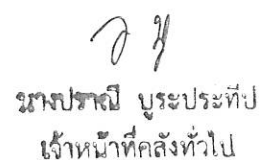 นางปราณี บูระประทีป
เจ้าหน้าที่คลังทั่วไป